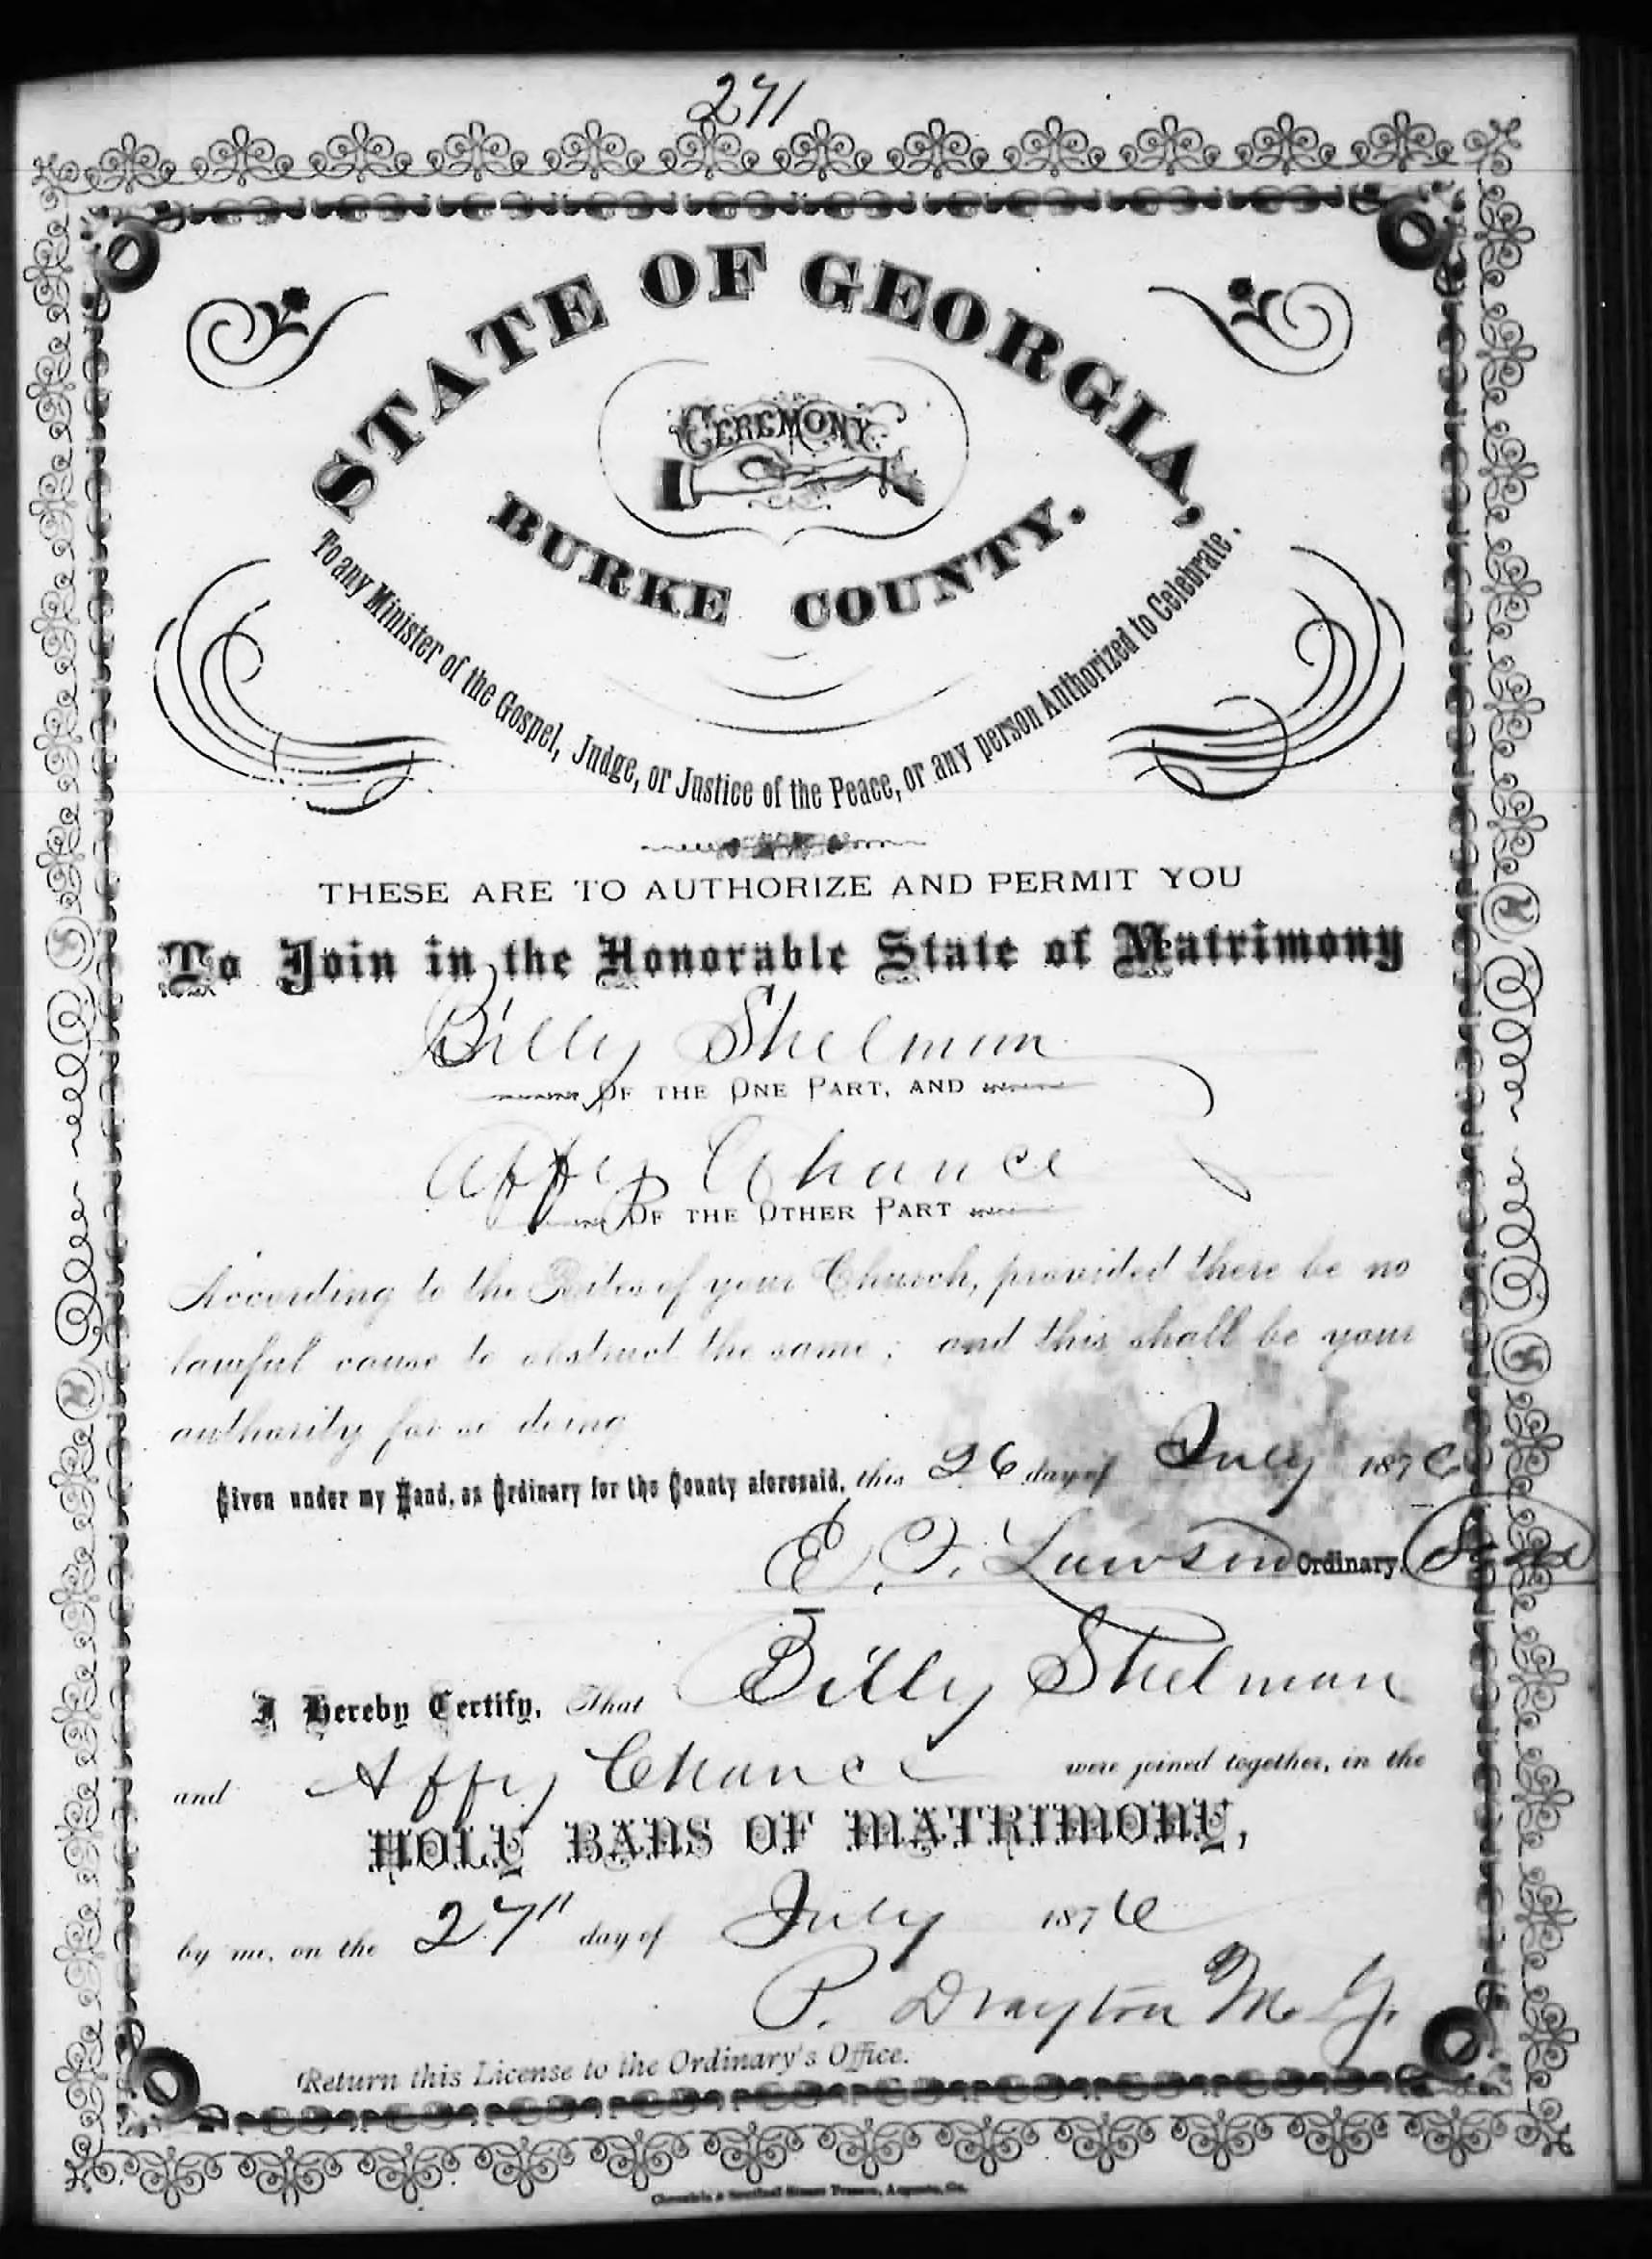 271
STATE OF GEORGIA,
CEREMONY
BURKE COUNTY.
To any Minister of the Gospel, Judge, or Justice of the Peace, or any person Authorized to Celebrate.
THESE ARE TO AUTHORIZE AND PERMIT YOU
To Join in the Honorable State of Matrimony
Billy Shelman
OF THE ONE PART, AND
Affy Chance
OF THE OTHER PART
According to the Rites of your Church, provided there be no
lawful cause to obstruct the same; and this shall be your
authority for so doing
Given under my Hand, as Ordinary for the County aforesaid, this 26 day of July 1876
E. F. Lawson Ordinary. Seal
I Hereby Certify, That Billy Shelman
and Affy Chance were joined together, in the
HOLY BANS OF MATRIMONY,
by me, on the 27" day of July 1876
P. Drayton M. G.
Return this License to the Ordinary's Office.
Chronicle & Sentinel Steam Presses, Augusta, Ga.